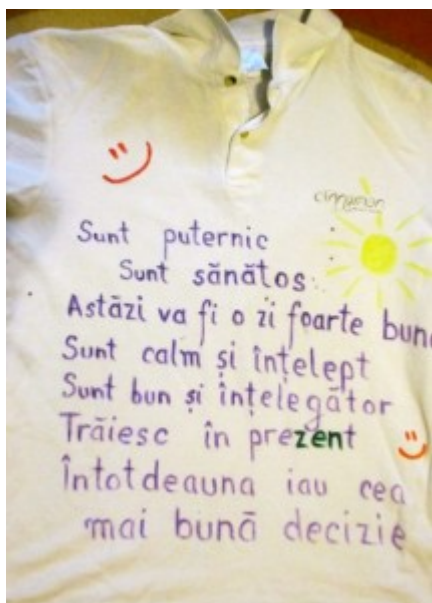 cinnamon
Sunt puternic
Sunt sănătos
Astăzi va fi o zi foarte bună
Sunt calm și înțelept
Sunt bun și înțelegător
Trăiesc în prezent
Întotdeauna iau cea
mai bună decizie